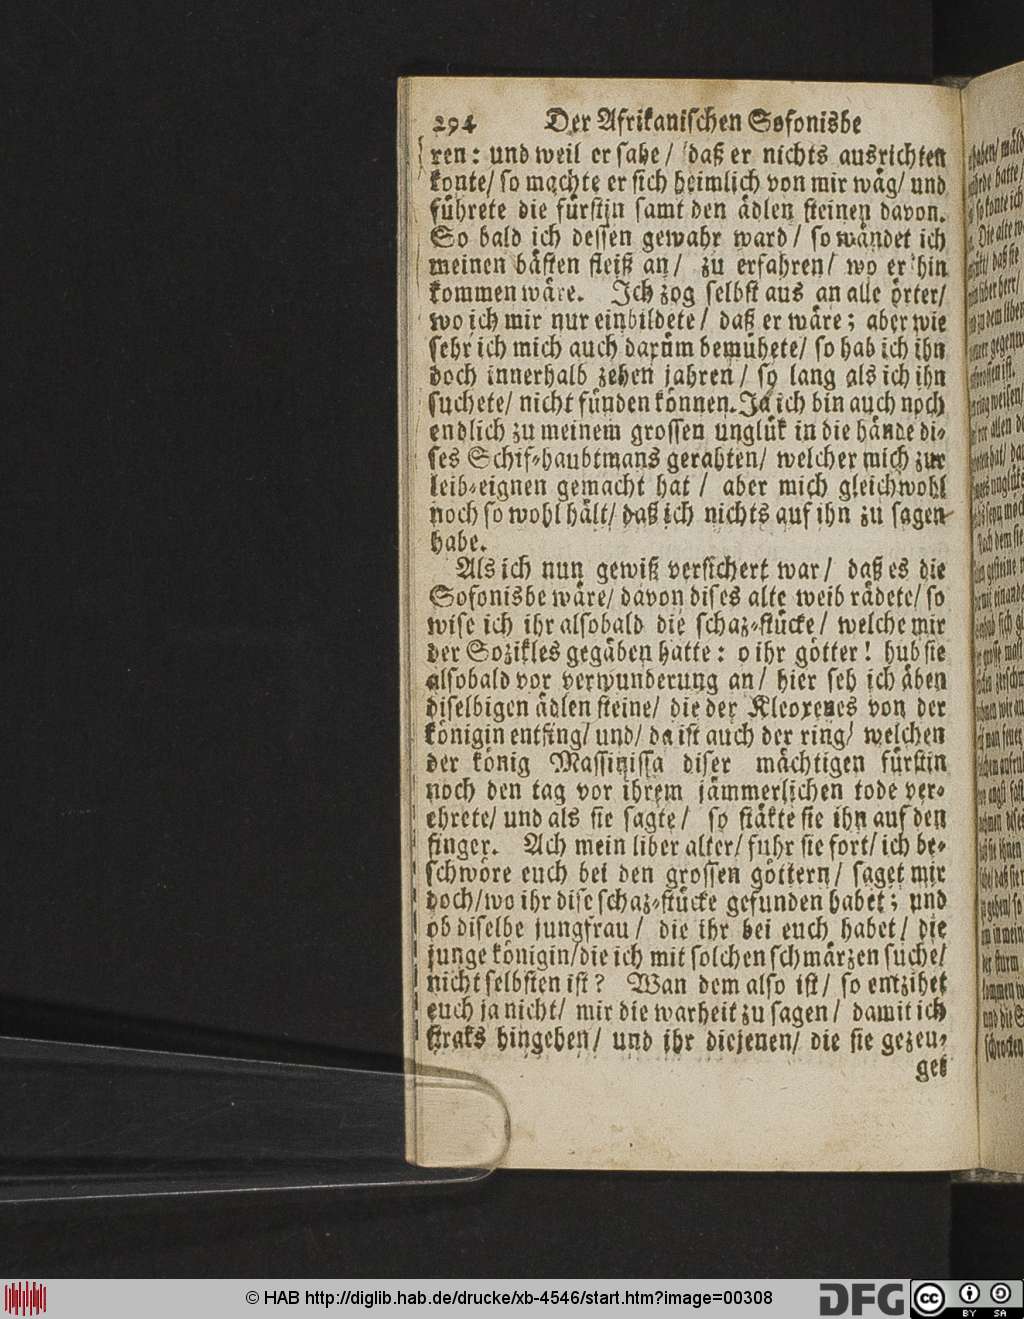 294 Der Afrikanischen Sofonisbe
ren: und weil er sahe / daß er nichts ausrichten
konte/ so machte er sich heimlich von mir wäg/ und
führete die fürstin samt den ädlen steinen davon.
So bald ich dessen gewahr ward / so wändet ich
meinen bästen fleiß an / zu erfahren / wo er hin
kommen wäre. Ich zog selbst aus an alle örter/
wo ich mir nur einbildete / daß er wäre; aber wie
sehr ich mich auch darüm bemühete/ so hab ich ihn
doch innerhalb zehen jahren / so lang als ich ihn
suchete/ nicht fünden können. Ja ich bin auch noch
endlich zu meinem grossen unglük in die hände di-
ses Schif-haubtmans gerahten/ welcher mich zur
leib-eignen gemacht hat / aber mich gleichwohl
noch so wohl hält/ daß ich nichts auf ihn zu sagen
habe.
Als ich nun gewiß versichert war / daß es die
Sofonisbe wäre/ davon dises alte weib rädete/ so
wise ich ihr alsobald die schaz-stücke / welche mir
der Sozikles gegäben hatte: o ihr götter! hub sie
alsobald vor verwunderung an / hier seh ich äben
diselbigen ädlen steine / die der Kleoxenes von der
königin entfing/ und/ da ist auch der ring/ welchen
der könig Massinissa diser mächtigen fürstin
noch den tag vor ihrem jämmerlichen tode ver-
ehrete/ und als sie sagte / so stäkte sie ihn auf den
finger. Ach mein liber alter/ fuhr sie fort/ ich be-
schwöre euch bei den grossen göttern / saget mir
doch/ wo ihr dise schaz-stücke gefunden habet; und
ob diselbe jungfrau / die ihr bei euch habet / die
junge königin/ die ich mit solchen schmärzen suche/
nicht selbsten ist? Wan dem also ist / so entzihet
euch ja nicht/ mir die warheit zu sagen / damit ich
straks hingehen / und ihr diejenen / die sie gezeu-
get
© HAB http://diglib.hab.de/drucke/xb-4546/start.htm?image=00308
DFG
cc BY SA